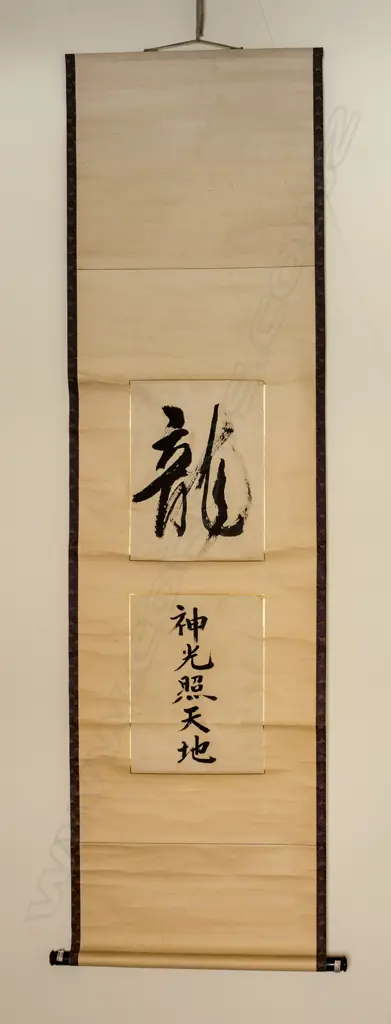 龍
神光照天地